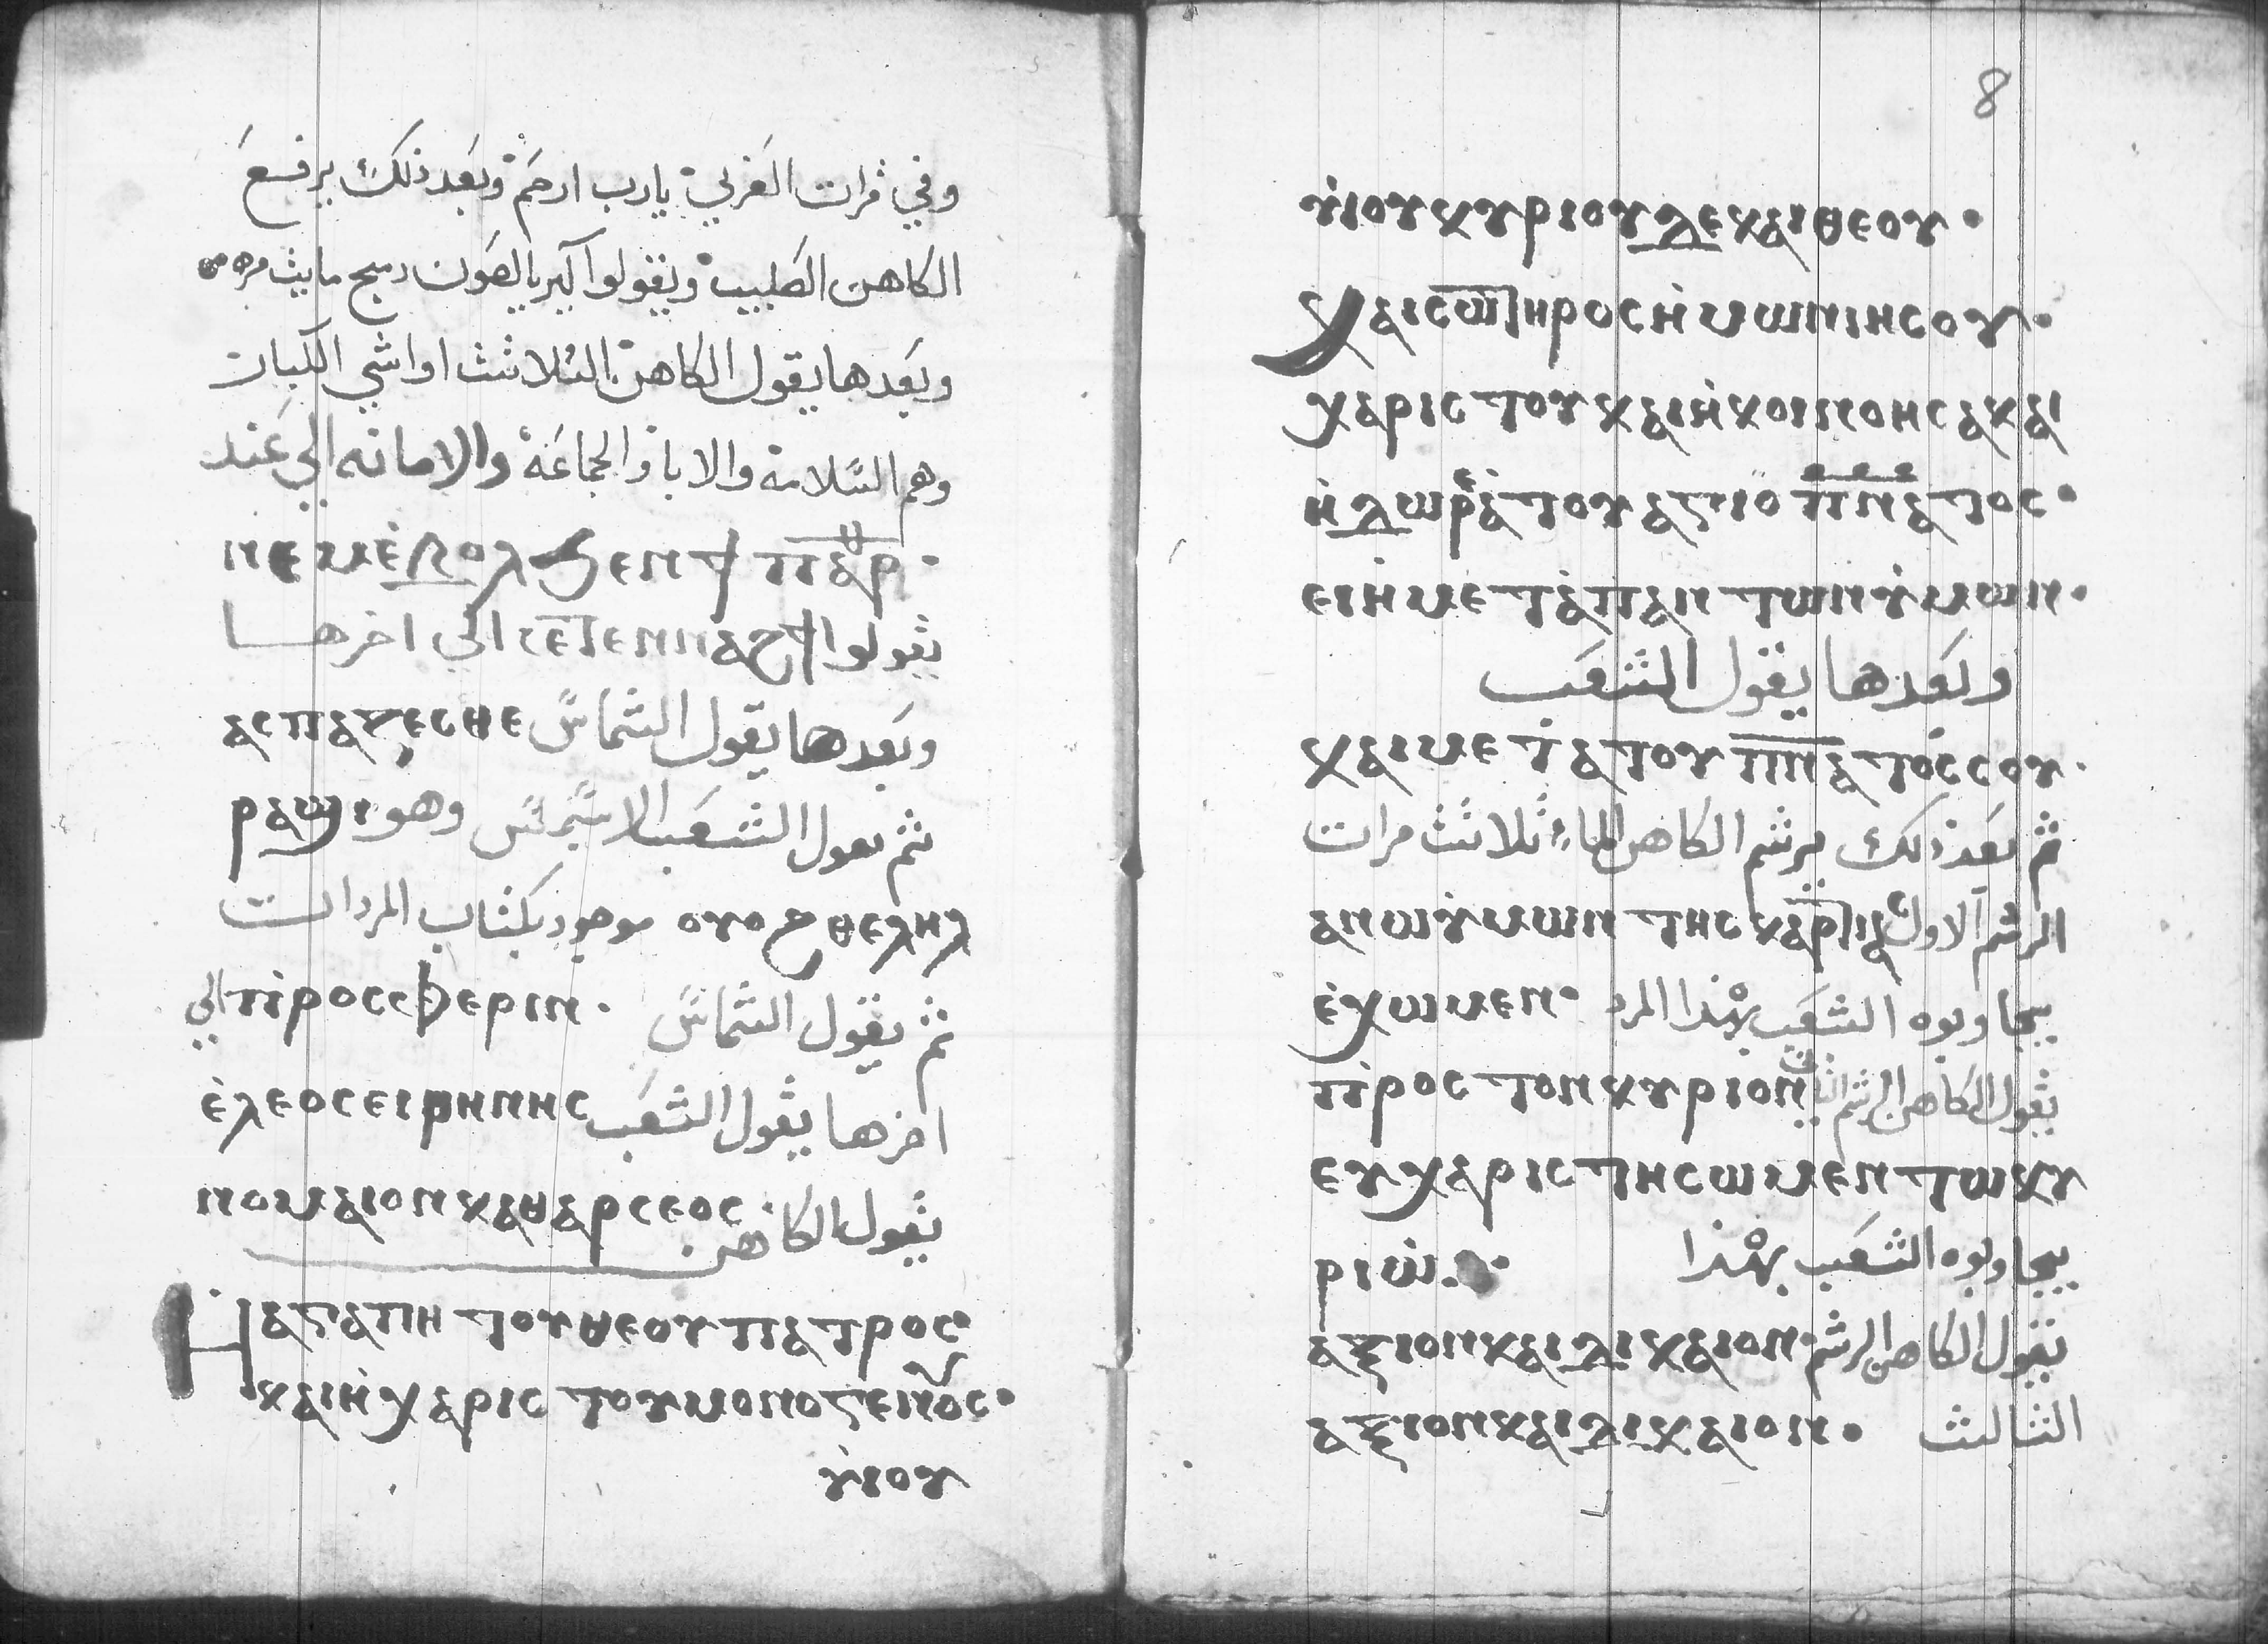 وفي مرات العزلي يارب ارحم وبعد ذلك يرفع
الكاهن الصليب ويقولوا كيرياليصون مايت مره
وبعدها يقول الكاهن الثلاثت اواشي الكبار
وهم السلامة والابا والجماعة والامانه الي عند
ⲛⲉⲙⲉⲃⲟⲗϧⲉⲛϯ ⲡⲁⲣ
يقولوا ϯϩⲓⲧⲉⲛⲛⲓ الي اخرها
وبعدها يقول الشماس ⲁⲥⲡⲁⲍⲉⲥⲑⲉ
ثم يقول الشعب الاسبسمس وهو ⲣⲁϣⲓ
ⲟⲩⲟϩ ⲑⲉⲗⲏⲗ موجود بكتاب المردات
ثم يقول الشماس ⲡⲣⲟⲥⲫⲉⲣⲓⲛ الي
اخرها يقول الشعب ⲉⲗⲉⲟⲥⲉⲓⲣⲏⲛⲏⲥ
يقول الكاهن ⲛⲟⲙⲁⲓⲟⲛⲕⲁⲑⲁⲣⲥⲉⲟⲥ
Ⲏⲁⲅⲁⲡⲏ ⲧⲟⲩⲑⲉⲟⲩⲡⲁⲧⲣⲟⲥ
ⲕⲁⲓⲏⲭⲁⲣⲓⲥ ⲧⲟⲩⲙⲟⲛⲟⲅⲉⲛⲟⲩⲥ
ⲩⲓⲟⲩ
8
ⲩⲓⲟⲩⲕⲩⲣⲓⲟⲩⲇⲉⲕⲁⲓⲑⲉⲟⲩ
ⲕⲁⲓⲥⲱⲧⲏⲣⲟⲥⲏⲙⲱⲛⲓⲏⲥⲟⲩ
ⲭⲣⲓⲥⲧⲟⲩⲕⲁⲓⲏⲕⲟⲓⲛⲟⲛⲏⲥⲁⲕⲁⲓ
ⲏⲇⲱⲣⲉⲁⲧⲟⲩⲁⲅⲓⲟ ⲡⲛⲁⲧⲟⲥ
ⲉⲓⲏⲙⲉⲧⲁⲡⲁⲛⲧⲱⲛⲩⲙⲱⲛ
وبعدها يقول الشعب
ⲕⲁⲓⲙⲉⲧⲁⲧⲟⲩ ⲡⲛⲁⲧⲟⲥⲥⲟⲩ
ثم بعد ذلك يرشم الكاهن الماء ثلاثت مرات
الرشم الاول ⲁⲛⲱⲩⲙⲱⲛ ⲧⲏⲥⲕⲁⲣⲇⲓⲁ
يجاوبوه الشعب بهذا المرد ⲉⲭⲱⲙⲉⲛ
يقول الكاهن الرشم الثاني ⲡⲣⲟⲥⲧⲟⲛⲕⲩⲣⲓⲟⲛ
ⲉⲩⲭⲁⲣⲓⲥⲧⲏⲥⲱⲙⲉⲛⲧⲱⲕⲩ
ⲣⲓⲱ يجاوبوه الشعب بهذا
يقول الكاهن الرشم ⲁⲝⲓⲟⲛⲕⲁⲓⲇⲓⲕⲁⲓⲟⲛ
الثالث ⲁⲝⲓⲟⲛⲕⲁⲓⲇⲓⲕⲁⲓⲟⲛ